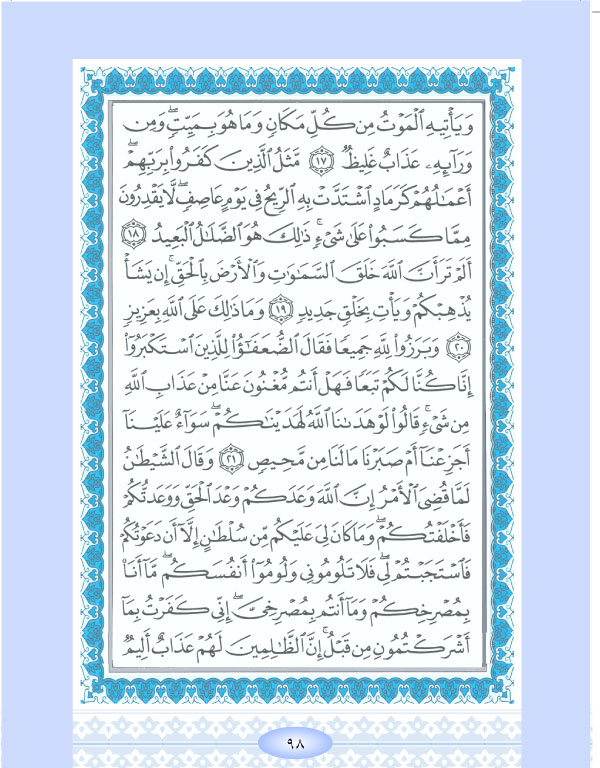 وَيَأْتِيهِ الْمَوْتُ مِن كُلِّ مَكَانٍ وَمَا هُوَ بِمَيِّتٍ ۖ وَمِن
وَرَآئِهِۦ عَذَابٌ غَلِيظٌ ﴿١٧﴾ مَّثَلُ الَّذِينَ كَفَرُوا۟ بِرَبِّهِمْ ۖ
أَعْمَـٰلُهُمْ كَرَمَادٍ اشْتَدَّتْ بِهِ الرِّيحُ فِى يَوْمٍ عَاصِفٍ ۖ لَّا يَقْدِرُونَ
مِمَّا كَسَبُوا۟ عَلَىٰ شَىْءٍ ۚ ذَٰلِكَ هُوَ الضَّلَـٰلُ الْبَعِيدُ ﴿١٨﴾
أَلَمْ تَرَ أَنَّ اللَّهَ خَلَقَ السَّمَـٰوَٰتِ وَالْأَرْضَ بِالْحَقِّ ۚ إِن يَشَأْ
يُذْهِبْكُمْ وَيَأْتِ بِخَلْقٍ جَدِيدٍ ﴿١٩﴾ وَمَا ذَٰلِكَ عَلَى اللَّهِ بِعَزِيزٍ
﴿٢٠﴾ وَبَرَزُوا۟ لِلَّهِ جَمِيعًا فَقَالَ الضُّعَفَـٰٓؤُا۟ لِلَّذِينَ اسْتَكْبَرُوٓا۟
إِنَّا كُنَّا لَكُمْ تَبَعًا فَهَلْ أَنتُم مُّغْنُونَ عَنَّا مِنْ عَذَابِ اللَّهِ
مِن شَىْءٍ ۚ قَالُوا۟ لَوْ هَدَىٰنَا اللَّهُ لَهَدَيْنَـٰكُمْ ۖ سَوَآءٌ عَلَيْنَآ
أَجَزِعْنَآ أَمْ صَبَرْنَا مَا لَنَا مِن مَّحِيصٍ ﴿٢١﴾ وَقَالَ الشَّيْطَـٰنُ
لَمَّا قُضِىَ الْأَمْرُ إِنَّ اللَّهَ وَعَدَكُمْ وَعْدَ الْحَقِّ وَوَعَدتُّكُمْ
فَأَخْلَفْتُكُمْ ۖ وَمَا كَانَ لِىَ عَلَيْكُم مِّن سُلْطَـٰنٍ إِلَّآ أَن دَعَوْتُكُمْ
فَاسْتَجَبْتُمْ لِى ۖ فَلَا تَلُومُونِى وَلُومُوٓا۟ أَنفُسَكُم ۖ مَّآ أَنَا۠
بِمُصْرِخِكُمْ وَمَآ أَنتُم بِمُصْرِخِىَّ ۖ إِنِّى كَفَرْتُ بِمَآ
أَشْرَكْتُمُونِ مِن قَبْلُ ۗ إِنَّ الظَّـٰلِمِينَ لَهُمْ عَذَابٌ أَلِيمٌ
٩٨